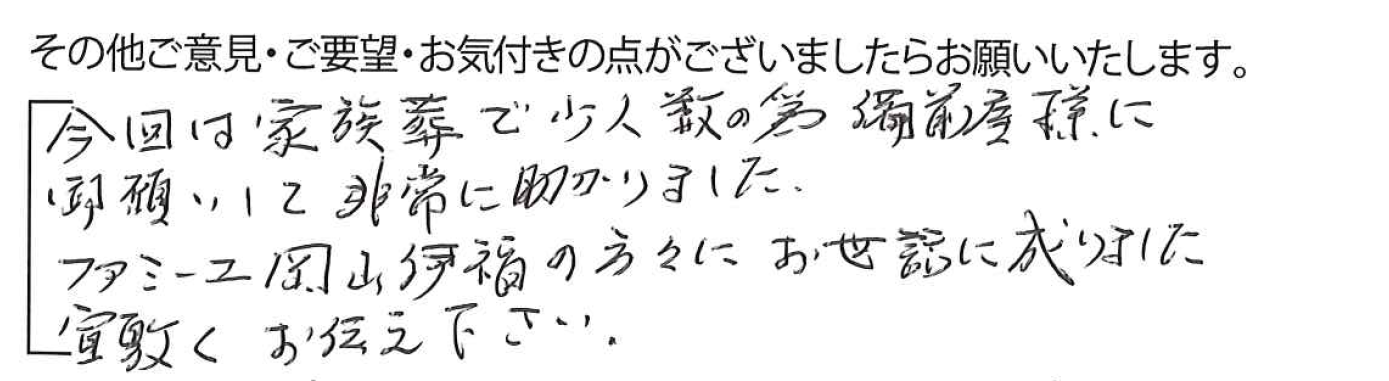 その他ご意見・ご要望・お気付きの点がございましたらお願いいたします。
今回は家族葬で少人数の為 備前屋様に
御願いして非常に助かりました.
ファミーユ岡山伊福の方々に お世話に成りました
宜敷く お伝え下さい.